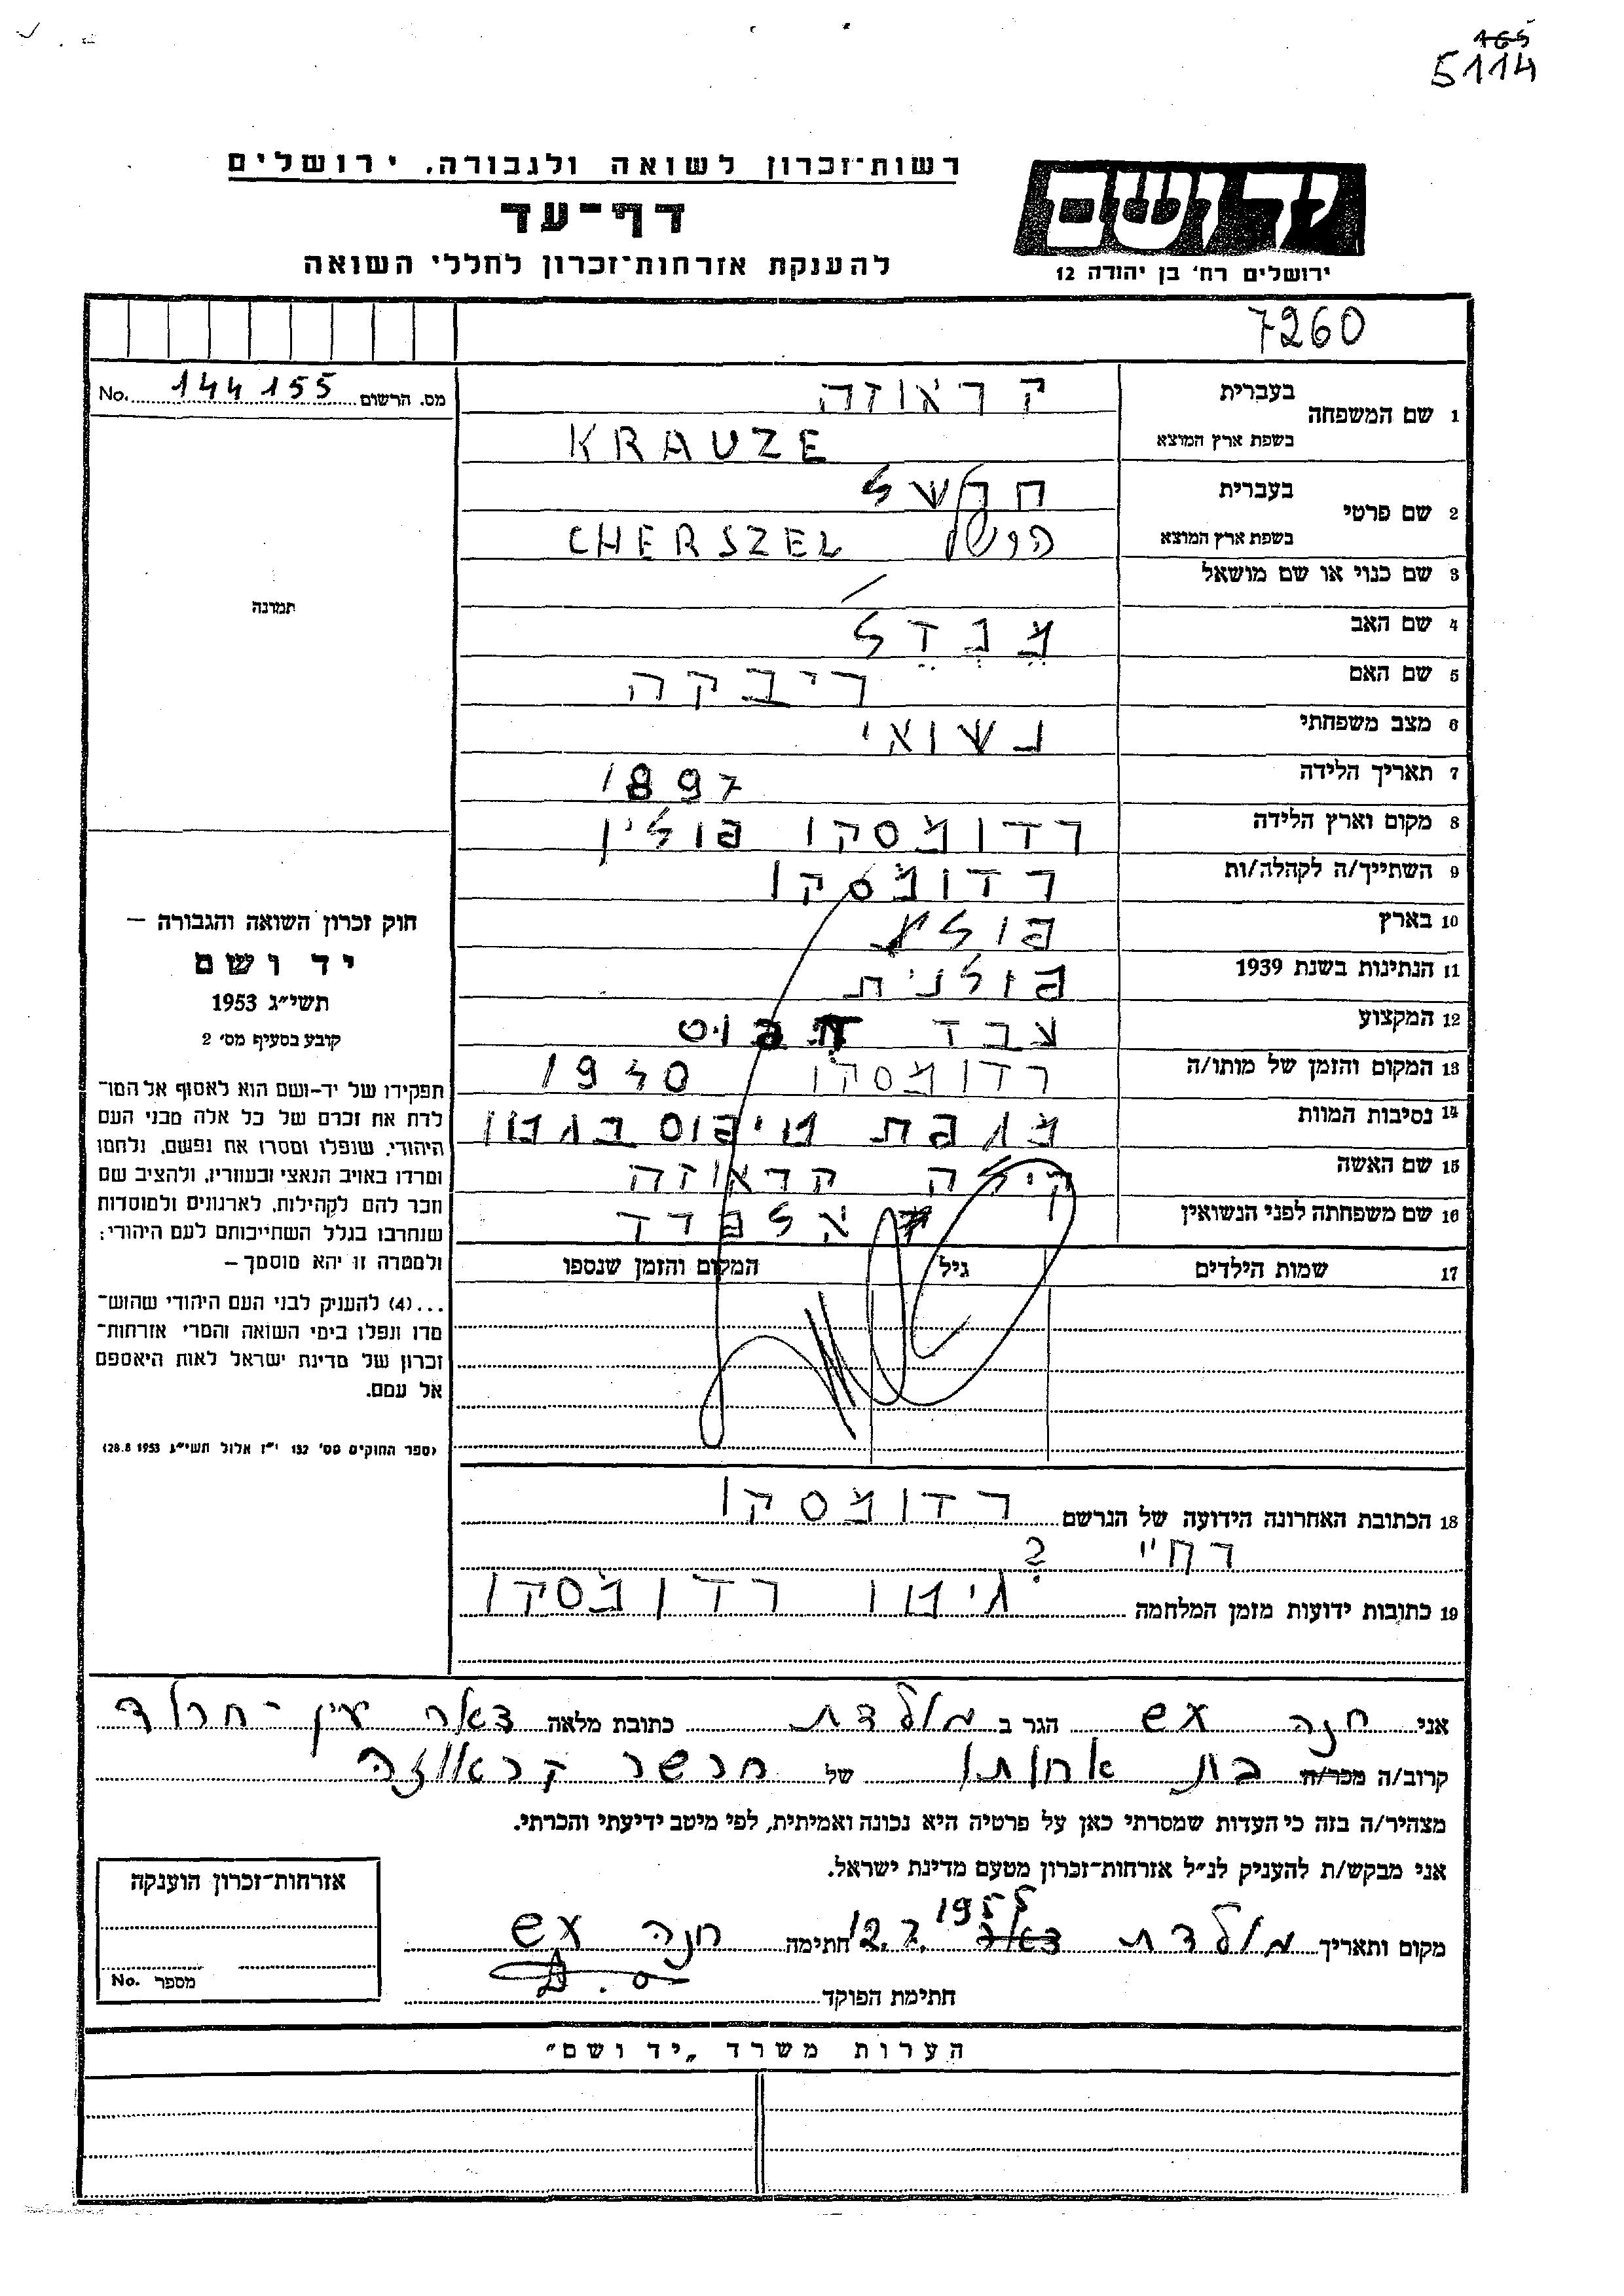 165
5114
רשות־זכרון לשואה ולגבורה. ירושלים
דף־עד
להענקת אזרחות־זכרון לחללי השואה
ידושם
ירושלים רח' בן יהודה 12
7260
מס. הרשום 144155 No.
1 שם המשפחה
בעברית קראוזה
בשפת ארץ המוצא KRAUZE
2 שם פרטי
בעברית חרשל
בשפת ארץ המוצא CHERSZEL
3 שם כנוי או שם מושאל /
4 שם האב מֶנְדֵל
5 שם האם ריבקה
6 מצב משפחתי נשואי
7 תאריך הלידה 1897
8 מקום וארץ הלידה רדומסקו פולין
9 השתייך/ה לקהלה/ות רדומסקו
10 בארץ פולין
11 הנתינות בשנת 1939 פולנית
12 המקצוע עבד
13 המקום והזמן של מותו/ה רדומסקו 1940
14 נסיבות המוות מגפת טיפוס בגטו
15 שם האשה קראוזה
16 שם משפחתה לפני הנשואין
17 שמות הילדים גיל המקום והזמן שנספו
תמונה
חוק זכרון השואה והגבורה –
יד ושם
תשי״ג 1953
קובע בסעיף מס׳ 2
תפקידו של יד-ושם הוא לאסוף אל המו־
לדת את זכרם של כל אלה מבני העם
היהודי, שנפלו ומסרו את נפשם, נלחמו
ומרדו באויב הנאצי ובעוזריו, ולהציב שם
וזכר להם לקהילות, לארגונים ולמוסדות
שנחרבו בגלל השתייכותם לעם היהודי;
ולמטרה זו יהא מוסמך –
...(4) להעניק לבני העם היהודי שהוש־
מדו ונפלו בימי השואה והמרי אזרחות־
זכרון של מדינת ישראל לאות היאספם
אל עמם.
(ספר החוקים מס׳ 132 י״ז אלול תשי״ג 28.8.1953)
18 הכתובת האחרונה הידועה של הנרשם רדומסקו
רח״ ?
19 כתובות ידועות מזמן המלחמה גיטו רדומסקו
אני חנה עש הגר ב מולדת כתובת מלאה דאר עין-חרוד
קרוב/ה מכר/ה בת אחותו של חרשל קראוזה
מצהיר/ה בזה כי העדות שמסרתי כאן על פרטיה היא נכונה ואמיתית, לפי מיטב ידיעתי והכרתי.
אני מבקש/ת להעניק לנ״ל אזרחות־זכרון מטעם מדינת ישראל.
מקום ותאריך מולדת דאר 12.7.1955 חתימה חנה עש
חתימת הפוקד
אזרחות־זכרון הוענקה
מספר No.
הערות משרד „יד ושם״